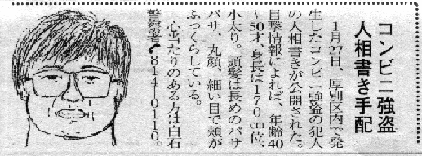 コンビニ強盗
人相書き手配
1月27日、厚別区内で発
生したコンビニ強盗の犯人
の人相書きが公開された。
目撃情報によれば、年齢40
～50才、身長は170cm位、
小太り。頭髪は長めのバサ
バサ、丸顔、細い目で頬が
ふっくらしている。
心当たりのある方は白石
警察署☎814-0110。